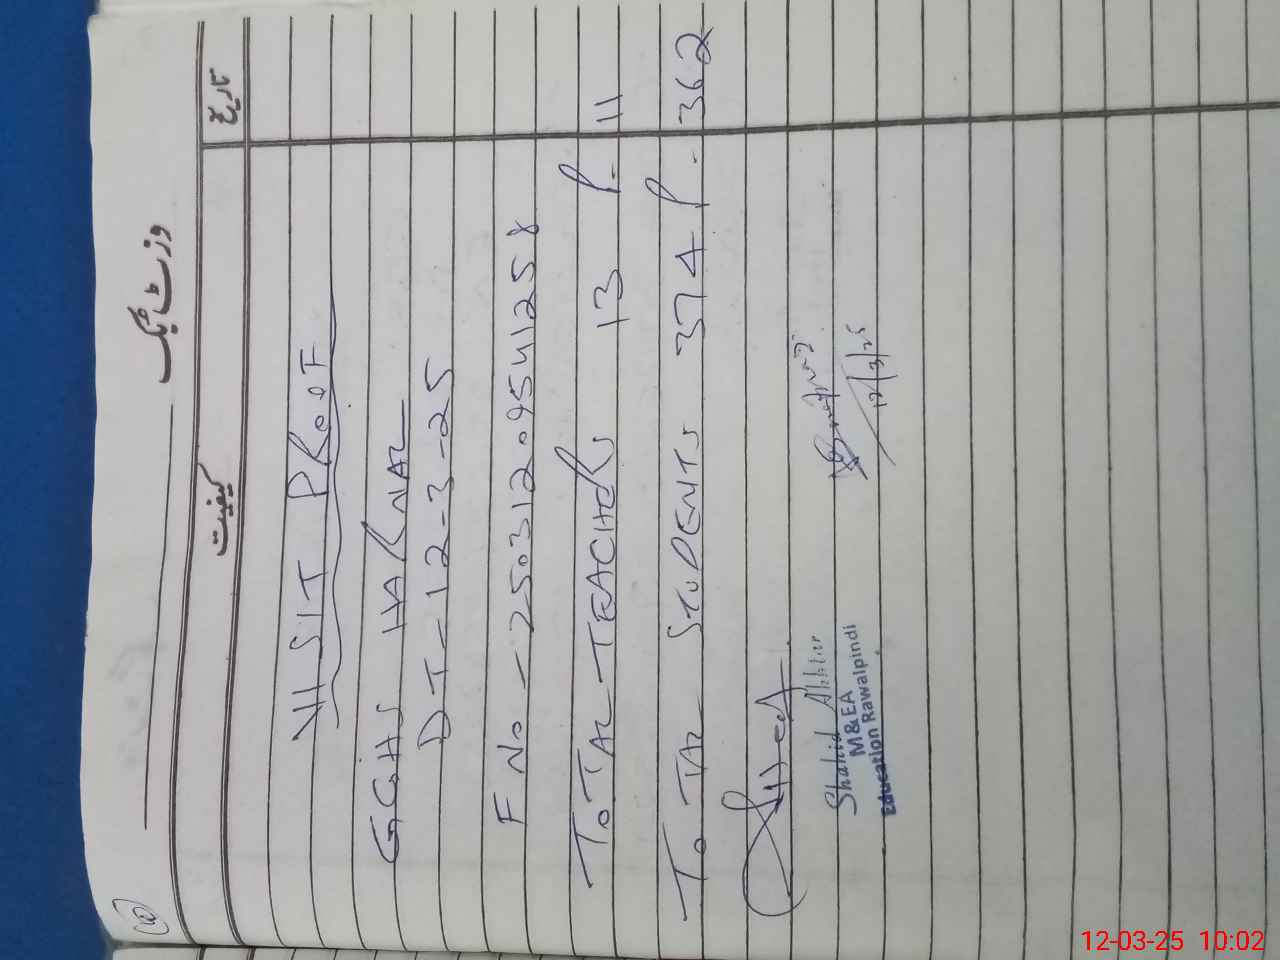 وزٹ بک
تاریخ
کیفیت
VISIT PROOF
GGHS HARNAL
DT-12-3-25
F No - 25031209541258
TOTAL TEACHERS 13 P. 11
TOTAL STUDENTS 374 P. 362
Shahid Akhtar
M&EA
Education Rawalpindi
12/3/25
12-03-25 10:02